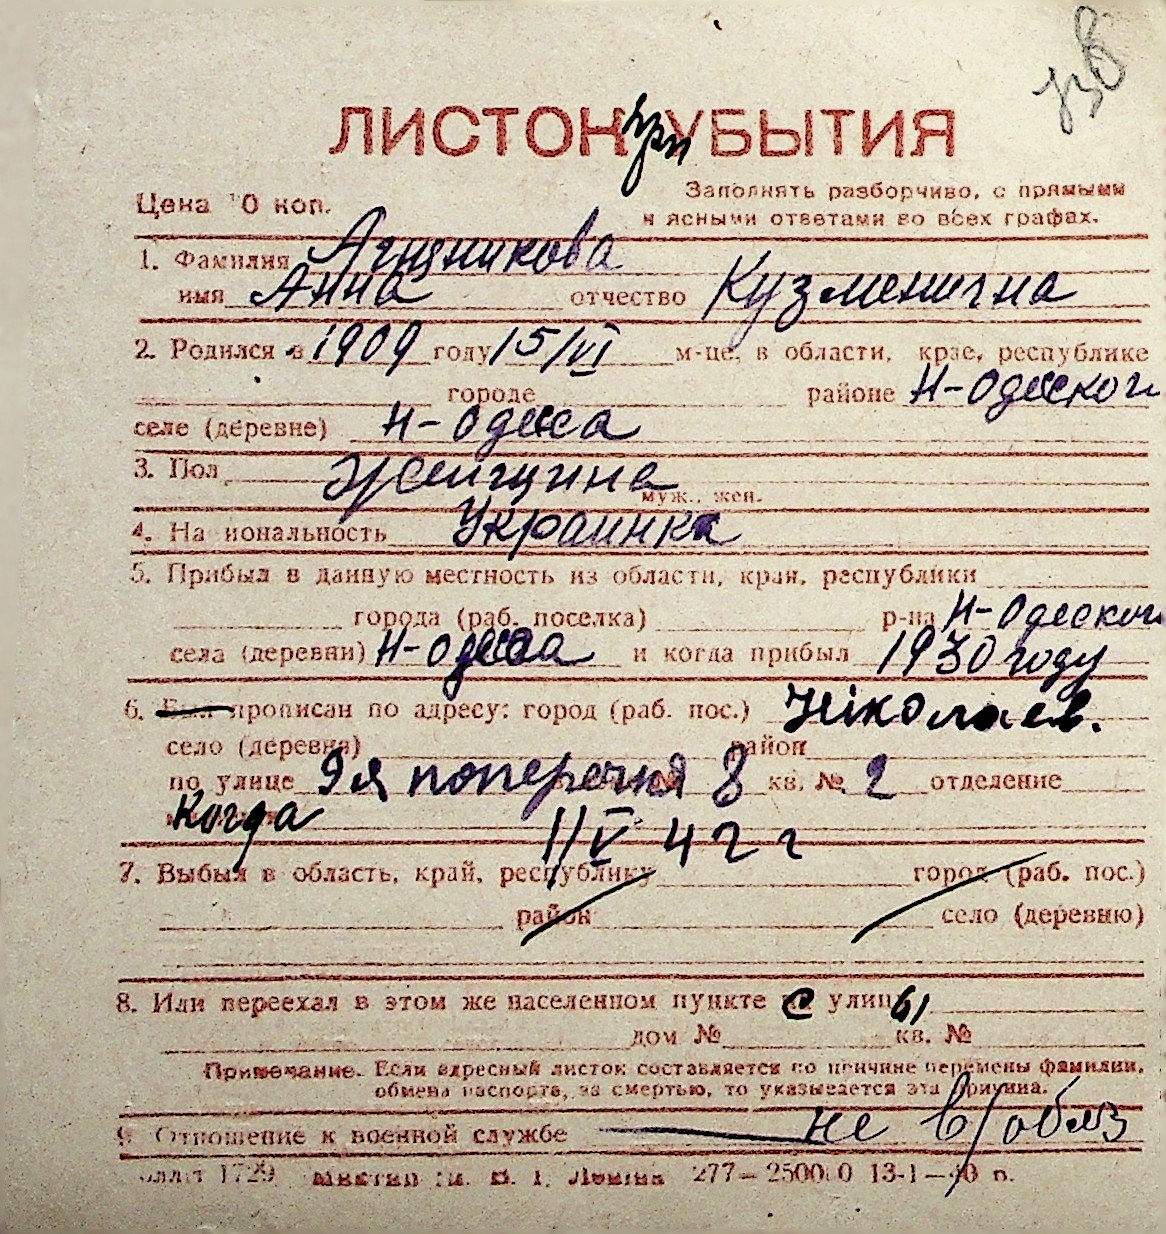 ЛИСТОК при УБЫТИЯ
Цена 10 коп.
Заполнять разборчиво, с прямыми
и ясными ответами во всех графах.
1. Фамилия
имя Анна отчество Кузменична
2. Родился в 1909 году 15/VI м-це, в области, крае, республике
городе районе Н-Одеского
селе (деревне) Н-Одеса
3. Пол женщина
муж., жен.
4. Национальность Украинка
5. Прибыл в данную местность из области, края, республики
города (раб. поселка) р-на Н-Одеского
села (деревни) Н-Одеса и когда прибыл 1930 году
6. Был прописан по адресу: город (раб. пос.) Ніколаев.
село (деревня) район
по улице 9я поперечня 8 кв. № 2 отделение
когда 11 V 42 г
7. Выбыл в область, край, республику город (раб. пос.)
район село (деревню)
8. Или переехал в этом же населенном пункте с улицы
дом № кв. №
Примечание. Если адресный листок составляется по причине перемены фамилии,
обмена паспорта, за смертью, то указывается эта причина.
9. Отношение к военной службе не в/обяз
1729 им. В. І. Леніна 277—250000 13-1—40 п.